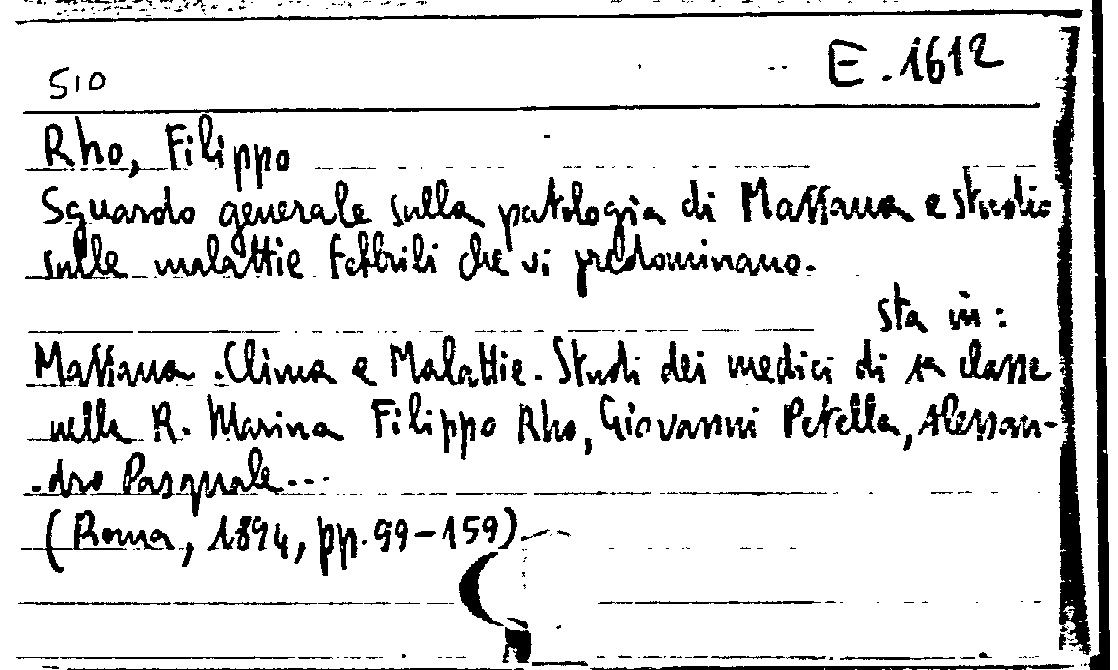 E.1612
510
Rho, Filippo
Sguardo generale sulla patologia di Massaua e studio
sulle malattie febbrili che vi predominano.
sta in:
Massaua. Clima e Malattie. Studi dei medici di 1a classe
nella R. Marina Filippo Rho, Giovanni Petella, Alessan-
dro Pasquale...
(Roma, 1894, pp. 99-159)